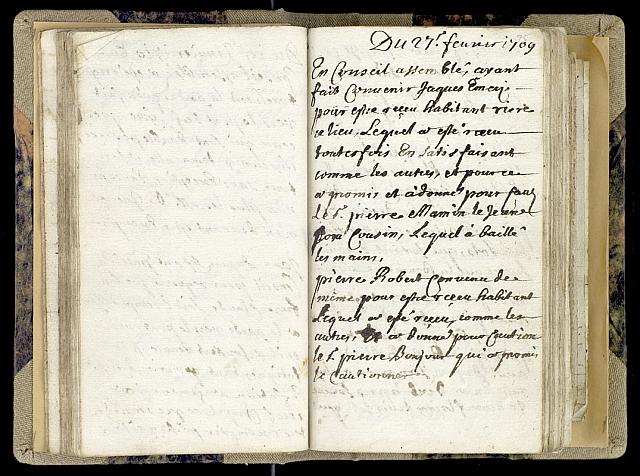 Du 27.e fevrier 1709
En Conseil assemblé, ayant
fait Convenir Jaques Emery
pour estre receu habitant riere
ce lieu, Lequel a esté receu
toutesfois En satisfaisant
comme les autres, et pour ce
a promis et a donné pour
le Sr. pierre Mamin le Jeune
son Cousin, Lequel a baillé
les mains,
pierre Robert Convenu de
même pour estre receu habitant
Lequel a esté receu, comme les
autres, et a donné pour Caution
le Sr. pierre Bonjour qui a promis
le Cautionner